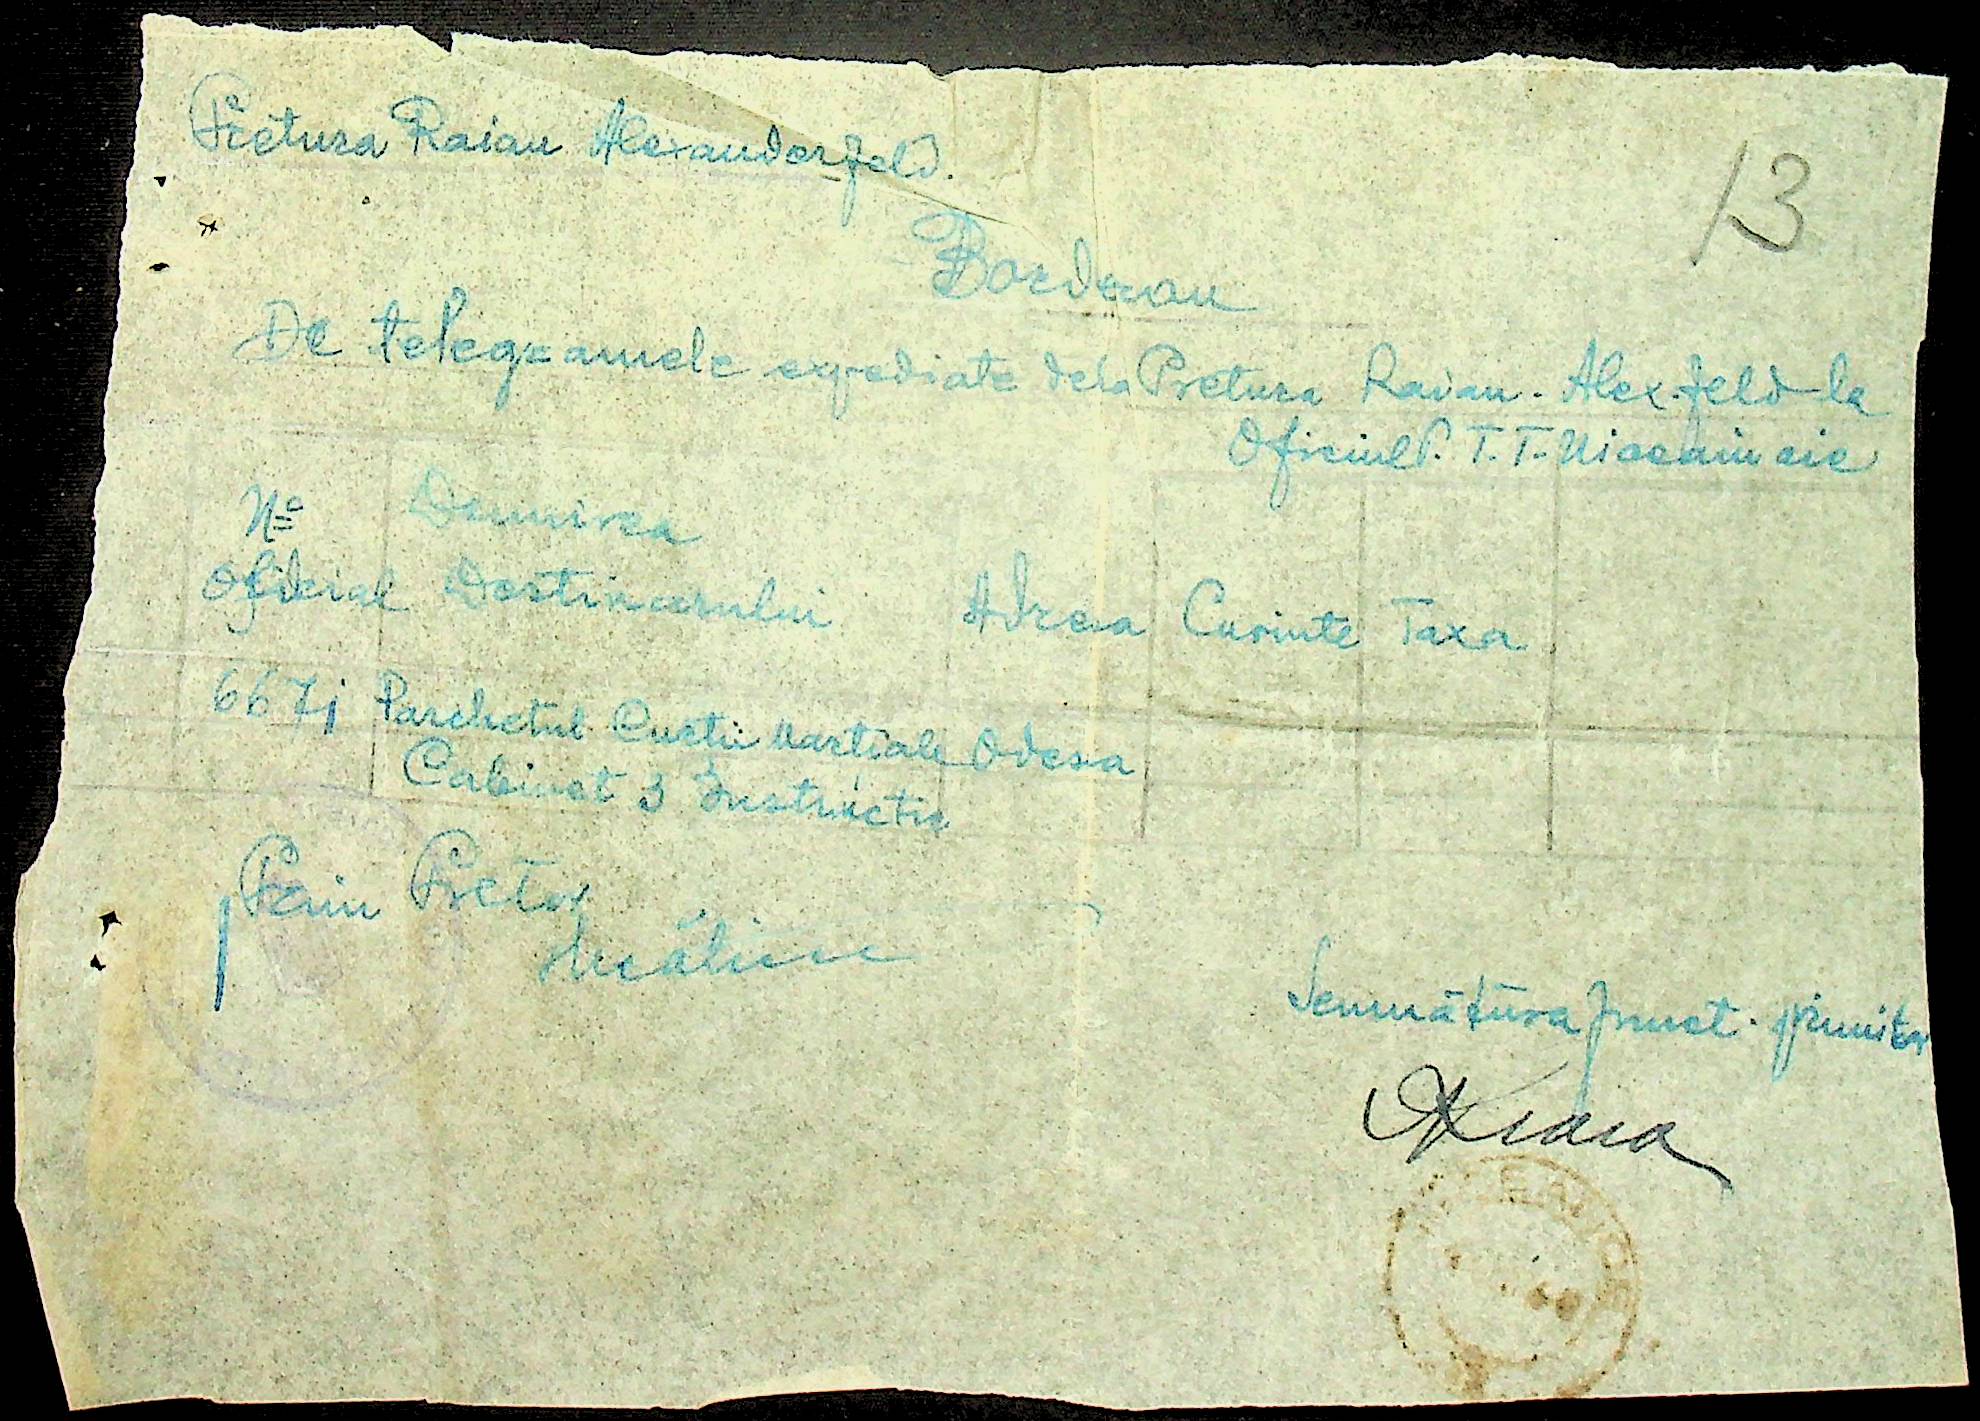 Pretura Raion Alexanderfeld.
13
Borderou
De telegramele expediate dela Pretura Raion. Alex.feld la
Oficiul P. T. T.
No Denumirea
Oficial Destinarului Adresa Cuvinte Taxa
667 Parchetul Curtii Martiale Odesa
Cabinet 3 Instructie
Prim Pretor
Semnătura funct. primitor